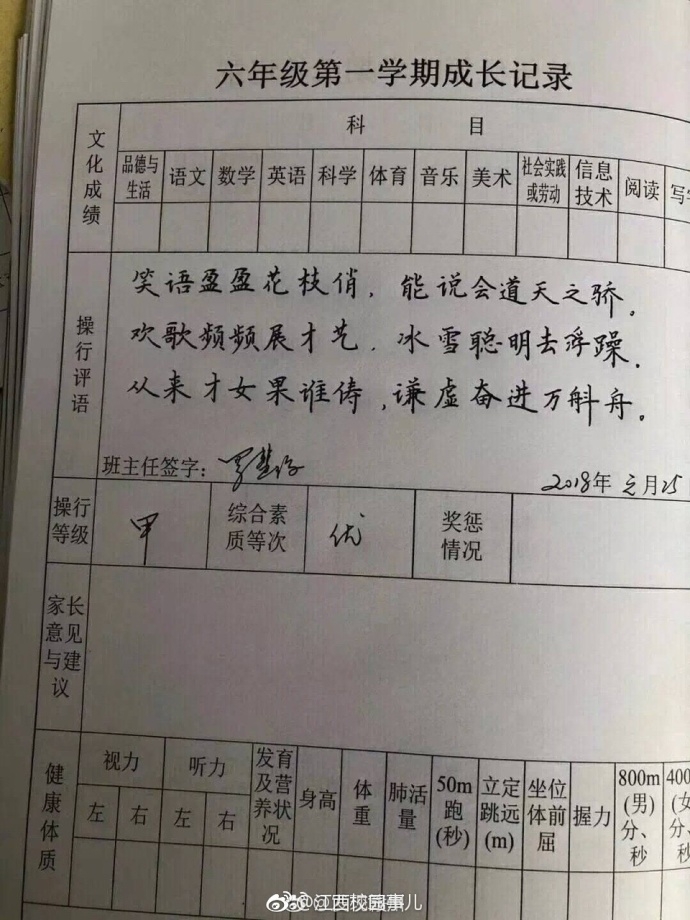 六年级第一学期成长记录
文化成绩
科 目
品德与生活 语文 数学 英语 科学 体育 音乐 美术 社会实践或劳动 信息技术 阅读 写字
操行评语
笑语盈盈花枝俏，能说会道天之骄。
欢歌频频展才艺，冰雪聪明去浮躁。
从来才女果谁俦，谦虚奋进万斛舟。
班主任签字：
2018年元月25
操行等级 甲 综合素质等次 优 奖惩情况
家长意见与建议
健康体质
视力 听力 发育及营养状况 身高 体重 肺活量 50m跑(秒) 立定跳远(m) 坐位体前屈 握力 800m(男)分、秒 400(女分、秒
左 右 左 右
@江西校园事儿